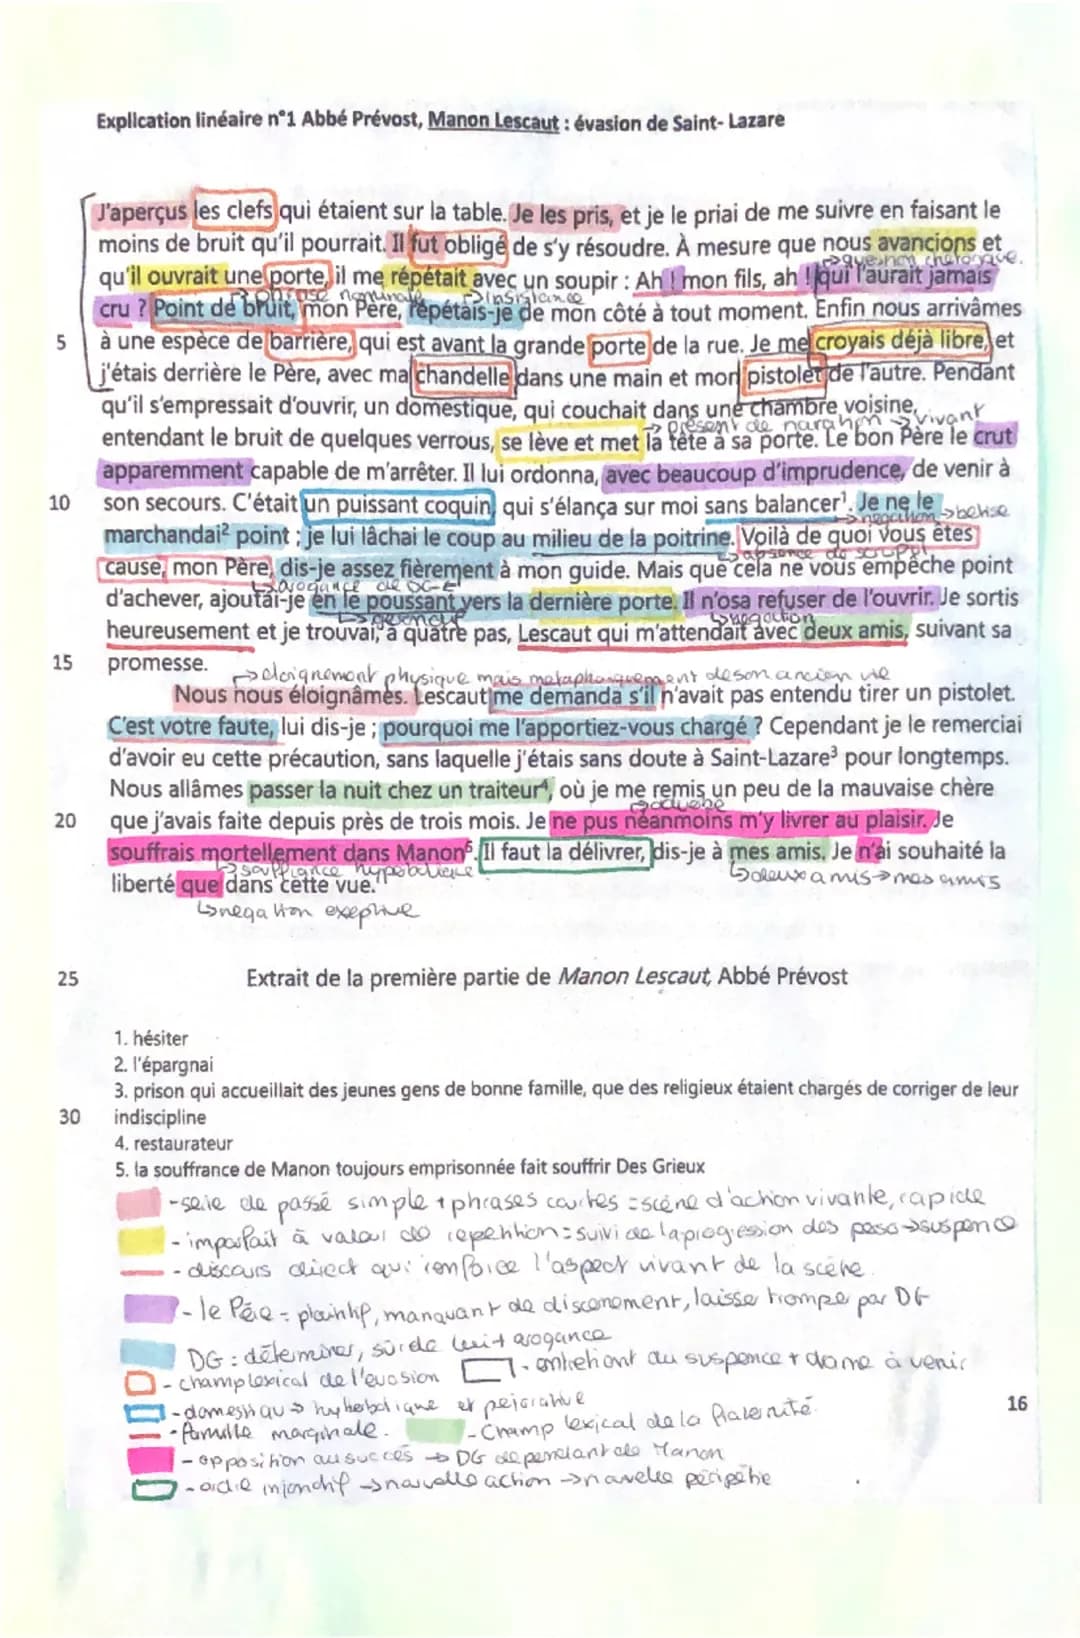 Explication linéaire n°1 Abbé Prévost, Manon Lescaut : évasion de Saint- Lazare
J'aperçus les clefs qui étaient sur la table. Je les pris, et je le priai de me suivre en faisant le
moins de bruit qu'il pourrait. Il fut obligé de s'y résoudre. À mesure que nous avancions et
qu'il ouvrait une porte, il me répétait avec un soupir : Ah ! mon fils, ah ! qui l'aurait jamais
phrase nominale →insistance
cru ? Point de bruit, mon Père, répétais-je de mon côté à tout moment. Enfin nous arrivâmes
5 à une espèce de barrière, qui est avant la grande porte de la rue. Je me croyais déjà libre, et
j'étais derrière le Père, avec ma chandelle dans une main et mon pistolet de l'autre. Pendant
qu'il s'empressait d'ouvrir, un domestique, qui couchait dans une chambre voisine,
→ présent de narahon → vivant
entendant le bruit de quelques verrous, se lève et met la tête à sa porte. Le bon Père le crut
apparemment capable de m'arrêter. Il lui ordonna, avec beaucoup d'imprudence, de venir à
10 son secours. C'était un puissant coquin, qui s'élança sur moi sans balancer¹. Je ne le
→negation →betise
marchandai² point ; je lui lâchai le coup au milieu de la poitrine. Voilà de quoi vous êtes
→absence de
cause, mon Père, dis-je assez fièrement à mon guide. Mais que cela ne vous empêche point
→arogance de DG
d'achever, ajoutai-je en le poussant vers la dernière porte. Il n'osa refuser de l'ouvrir. Je sortis
↳negation
heureusement et je trouvai, à quatre pas, Lescaut qui m'attendait avec deux amis, suivant sa
15 promesse.
→eloignement physique mais metaphoriquement de son ancien vie
Nous nous éloignâmes. Lescaut me demanda s'il n'avait pas entendu tirer un pistolet.
C'est votre faute, lui dis-je ; pourquoi me l'apportiez-vous chargé ? Cependant je le remerciai
d'avoir eu cette précaution, sans laquelle j'étais sans doute à Saint-Lazare³ pour longtemps.
Nous allâmes passer la nuit chez un traiteur⁴, où je me remis un peu de la mauvaise chère
→adverbe
20 que j'avais faite depuis près de trois mois. Je ne pus néanmoins m'y livrer au plaisir. Je
souffrais mortellement dans Manon⁵. Il faut la délivrer, dis-je à mes amis. Je n'ai souhaité la
→souffrance hyperbolique ↳deux amis→mes amis
liberté que dans cette vue."
↳negation exeptive
25 Extrait de la première partie de Manon Lescaut, Abbé Prévost
1. hésiter
2. l'épargnai
3. prison qui accueillait des jeunes gens de bonne famille, que des religieux étaient chargés de corriger de leur
30 indiscipline
4. restaurateur
5. la souffrance de Manon toujours emprisonnée fait souffrir Des Grieux
-serie de passé simple + phrases courtes =scène d'action vivante, rapide
- imparfait à valeur de repetition = suivi de la progression des pas →suspence
- discours direct qui renforce l'aspect vivant de la scène.
- le Père = plaintif, manquant de discernement, laisse trompe par DG
DG : déterminer, sur de lui + arogance
- entretiont du suspence + drame à venir
- champ lexical de l'evasion
- domestique → hyperbolique et pejorative
- famille marginale. - Champ lexical de la fraternité.
16
- opposition au succès → DG dependant de Manon
- ordre injonctif → nouvelle action → nouvelle péripétie